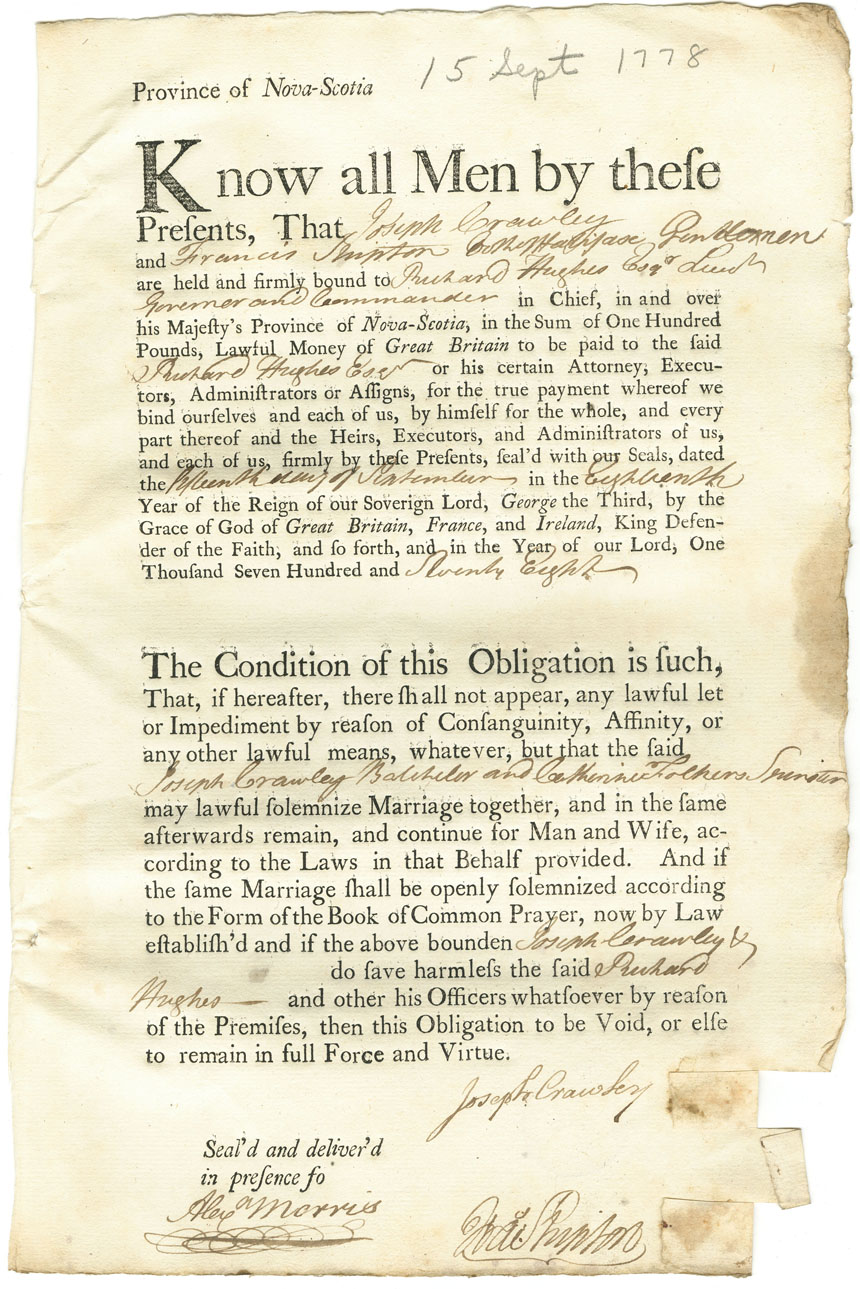 15 Sept 1778
Province of Nova-Scotia
Know all Men by theſe
Preſents, That Joseph Crawley
and Francis Shipton both of Halifax Gentlemen
are held and firmly bound to Richard Hughes Esqr Lieut
Governer and Commander in Chief, in and over
his Majeſty's Province of Nova-Scotia, in the Sum of One Hundred
Pounds, Lawful Money of Great Britain to be paid to the ſaid
Richard Hughes Esqr or his certain Attorney, Execu-
tors, Adminiſtrators or Aſſigns, for the true payment whereof we
bind ourſelves and each of us, by himſelf for the whole, and every
part thereof and the Heirs, Executors, and Adminiſtrators of us,
and each of us, firmly by theſe Preſents, ſeal'd with our Seals, dated
the fifteenth day of September in the Eighteenth
Year of the Reign of our Soverign Lord, George the Third, by the
Grace of God of Great Britain, France, and Ireland, King Defen-
der of the Faith, and ſo forth, and in the Year of our Lord, One
Thouſand Seven Hundred and Seventy Eight
The Condition of this Obligation is ſuch,
That, if hereafter, there ſhall not appear, any lawful let
or Impediment by reaſon of Conſanguinity, Affinity, or
any other lawful means, whatever, but that the ſaid
Joseph Crawley Batchelor and Catherine Folkers Spinster
may lawful ſolemnize Marriage together, and in the ſame
afterwards remain, and continue for Man and Wife, ac-
cording to the Laws in that Behalf provided. And if
the ſame Marriage ſhall be openly ſolemnized according
to the Form of the Book of Common Prayer, now by Law
eſtabliſh'd and if the above bounden Joseph Crawley &
do ſave harmleſs the ſaid Richard
Hughes and other his Officers whatſoever by reaſon
of the Premiſes, then this Obligation to be Void, or elſe
to remain in full Force and Virtue.
Joseph Crawley
Seal'd and deliver'd
in preſence fo
Alexr Morris
Shipton